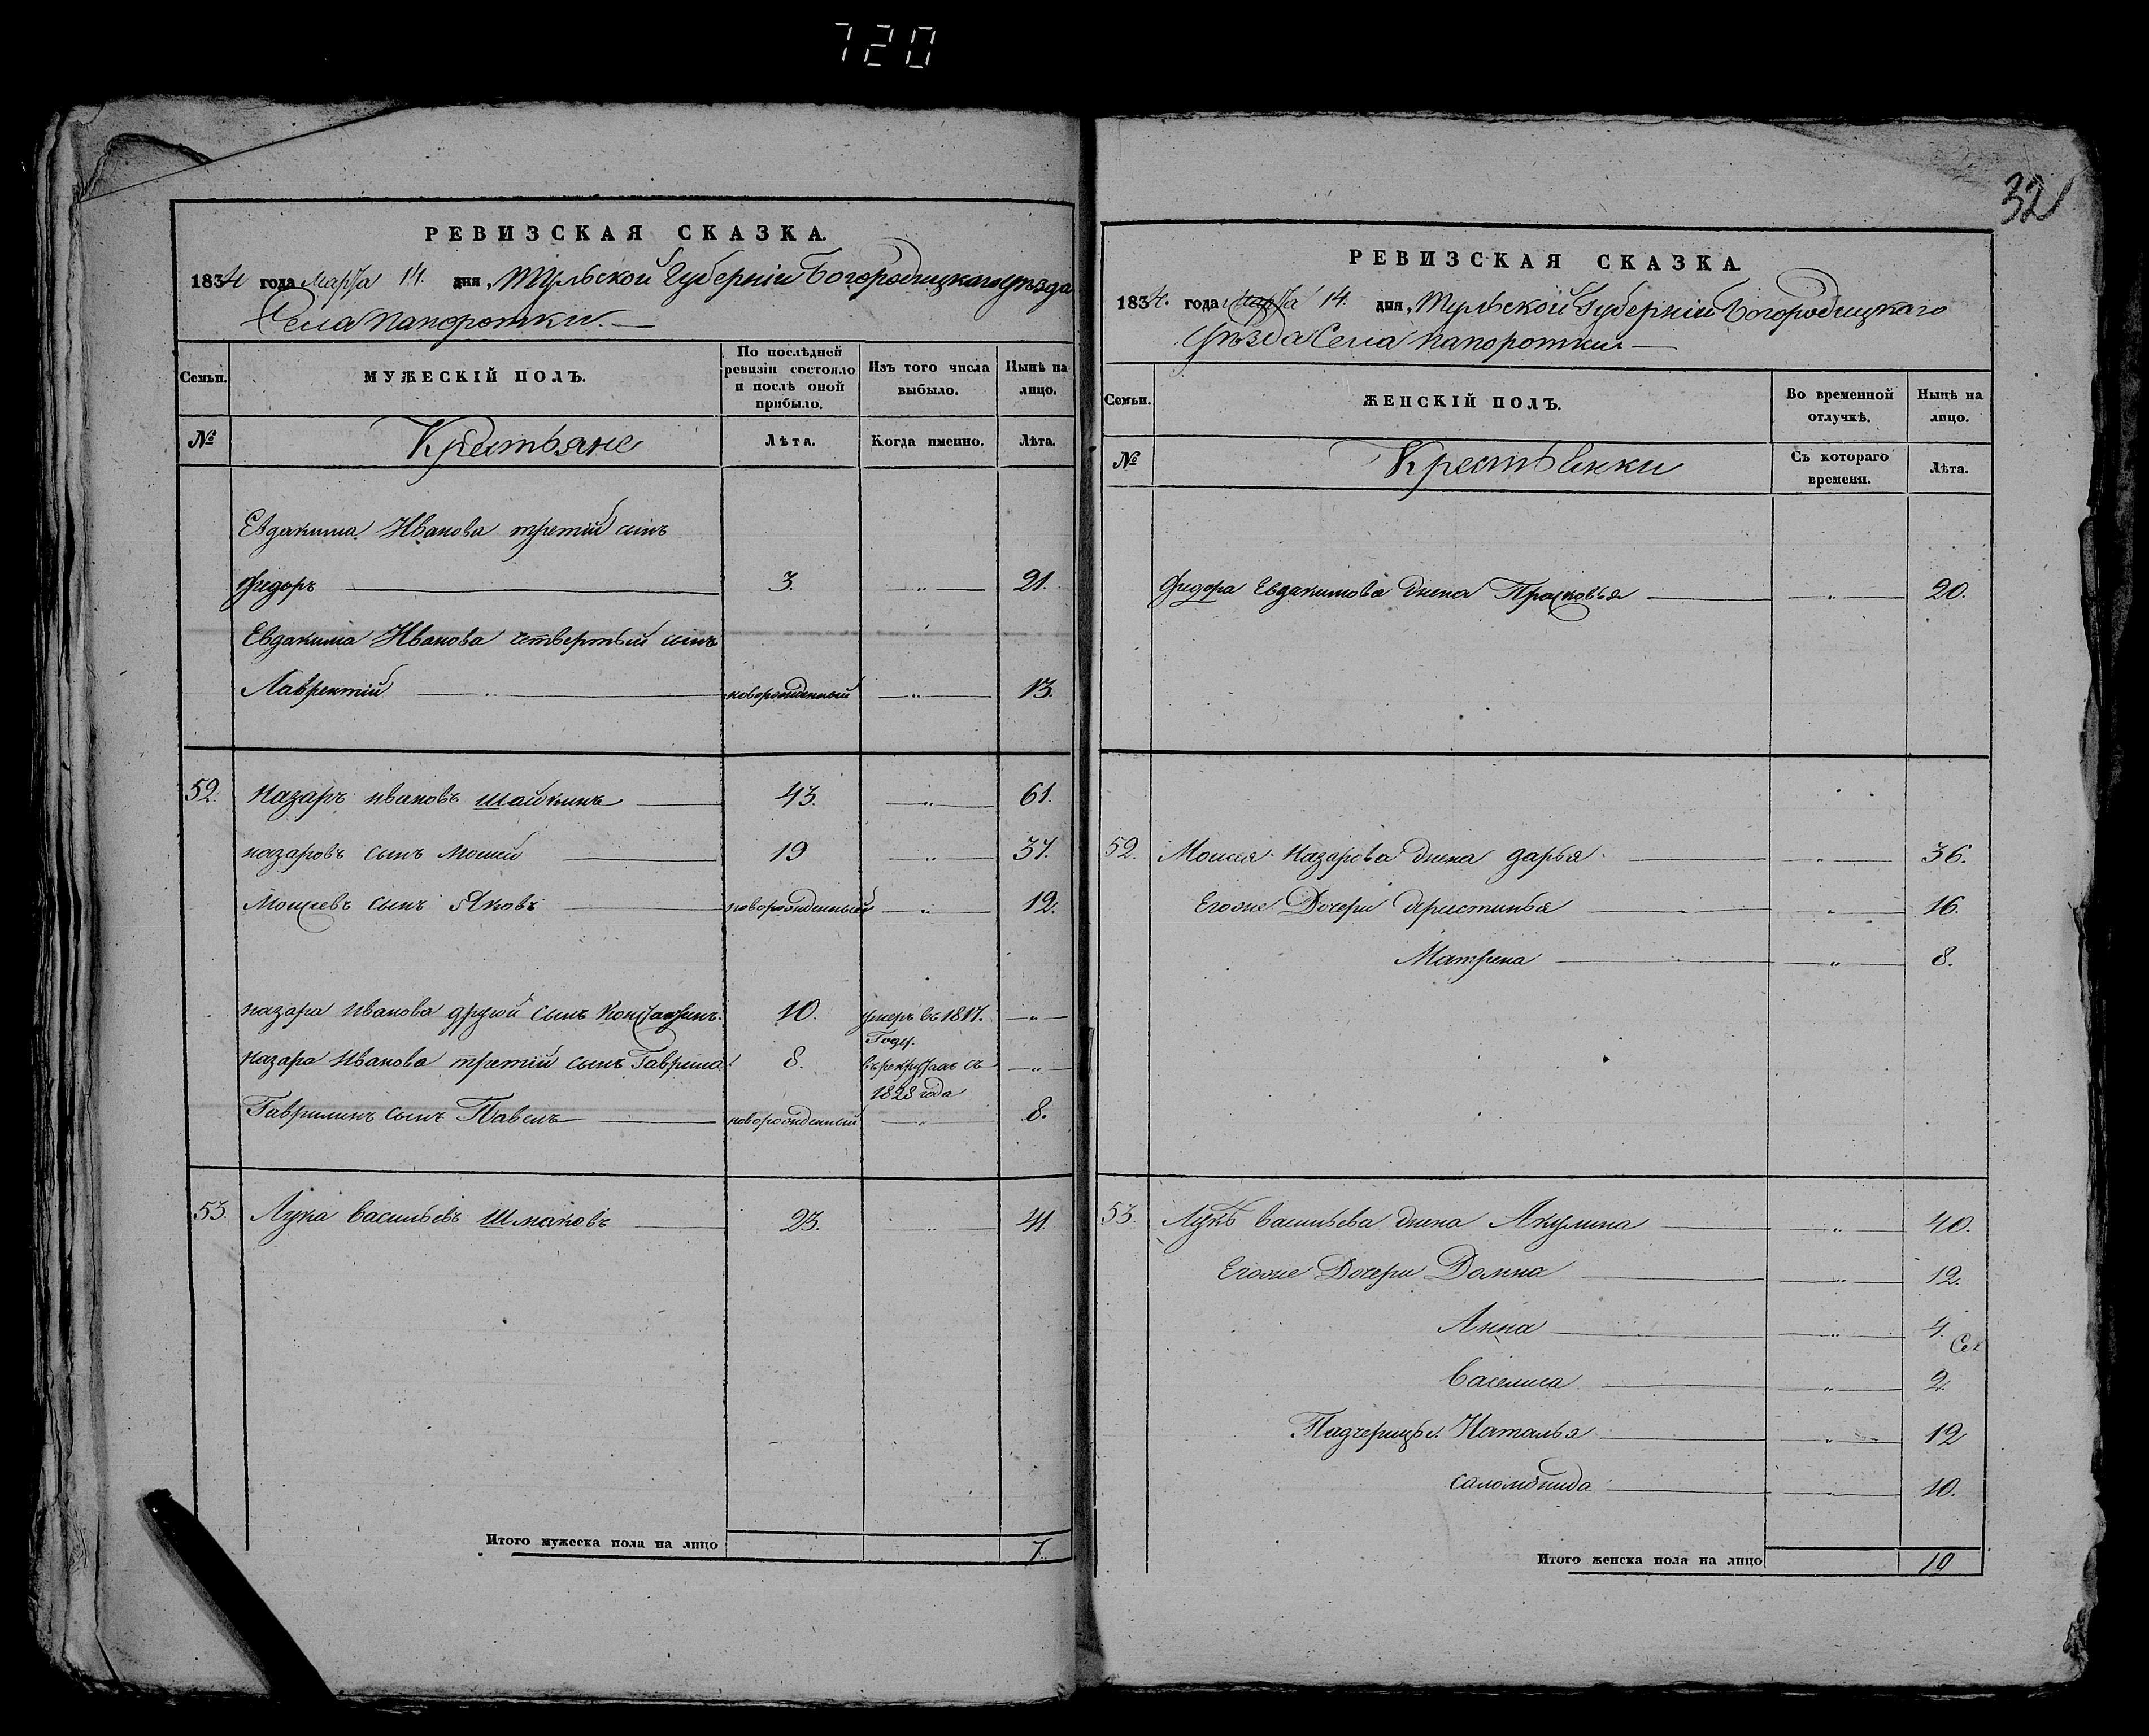 720
РЕВИЗСКАЯ СКАЗКА.
1834 года Марта 14. дня, Тульской Губерніи Богородицкаго уѣзда
Села Папоротки.
Семьи.
МУЖЕСКІЙ ПОЛЪ.
По послѣдней ревизіи состояло и послѣ оной прибыло.
Изъ того числа выбыло.
Нынѣ на лицо.
№
Крестьяне
Лѣта.
Когда именно.
Лѣта.
Евдакима Иванова третій сынъ
Федоръ 3. " 21.
Евдакима Иванова четвертый сынъ
Лаврентій новорожденный " 13.
52. Назаръ Ивановъ Шайкинъ 43. " 61.
Назаровъ сынъ Моисей 19 " 37.
Моисеевъ сынъ Яковъ новорожденный " 12.
Назара Иванова другой сынъ Константинъ. 10. умеръ въ 1817. Году. "
Назара Иванова третій сынъ Гаврила 8. въ рекрутахъ съ 1828 года "
Гаврилинъ сынъ Павелъ новорожденный " 8.
53. Лука Васильевъ Шмаковъ 23. " 41.
Итого мужеска пола на лицо 7.
32
РЕВИЗСКАЯ СКАЗКА.
1834. года Марта 14. дня, Тульской Губерніи Богородицкаго
Уѣзда Села Папоротки
Семьи.
ЖЕНСКІЙ ПОЛЪ.
Во временной отлучкѣ.
Нынѣ на лицо.
№
Крестьянки
Съ котораго времени.
Лѣта.
Федора Евдакимова жена Прасковья " 20.
52. Моисея Назарова жена Дарья " 36.
Егоже Дочери Аристинья " 16.
Матрена " 8.
53. Луки Васильева жена Акулина " 40.
Егоже Дочери Домна " 12.
Анна " 4.
Василиса " 2.
Падчерицы Наталья " 12
Саломѣнида " 10.
Итого женска пола на лицо 10